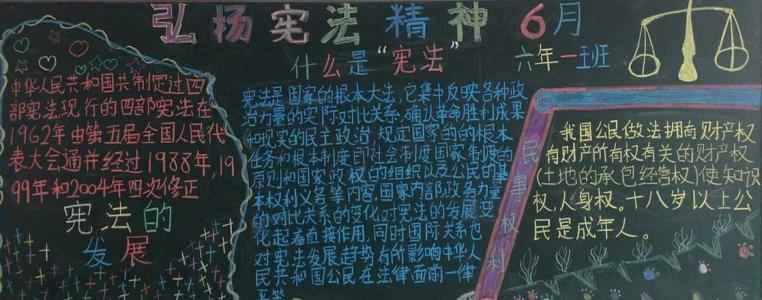 弘扬宪法精神 6月
六年一班
什么是“宪法”
中华人民共和国共制定过四
部宪法现行的四部宪法在
1962年由第五届全国人民代
表大会通并经过1988年,19
99年和2004年四次修正
宪法的
发展
宪法是国家的根本大法,它集中反映各种政
治力量的实际对比关系,确认革命胜利成果
和现实的民主政治,规定国家的的根本
任务和根本制度即社会制度国家制度的
原则和国家政权的组织以及公民的基
本权利义务等内容,国家内部政各力量
的对比关系的变化对宪法的发展变
化起着直接作用,同时国际关系也
对宪法发展趋势有所影响中华人
民共和国公民在法律面雨一律
平等
民事权利
我国公民做法拥有财产权
有财产所有权有关的财产权
(土地的承包经营权)使知识
权,人身权。十八岁以上公
民是成年人。